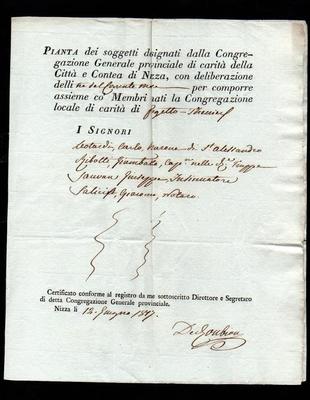 PIANTA dei soggetti dsignati dalla Congre-
gazione Generale provinciale di carità della
Città e Contea di Nizza, con deliberazione
delli del corrente mese per comporre
assieme co' Membri nati la Congregazione
locale di carità di
I SIGNORI
Carlo, Barone di S.t Alessandro
nelle R.e Truppe
Sauvan, Giuseppe, Insinuatore
Giacomo, Notaro
Certificato conforme al registro da me sottoscritto Direttore e Segretaro
di detta Congregazione Generale provinciale.
Nizza li 12. Giugno